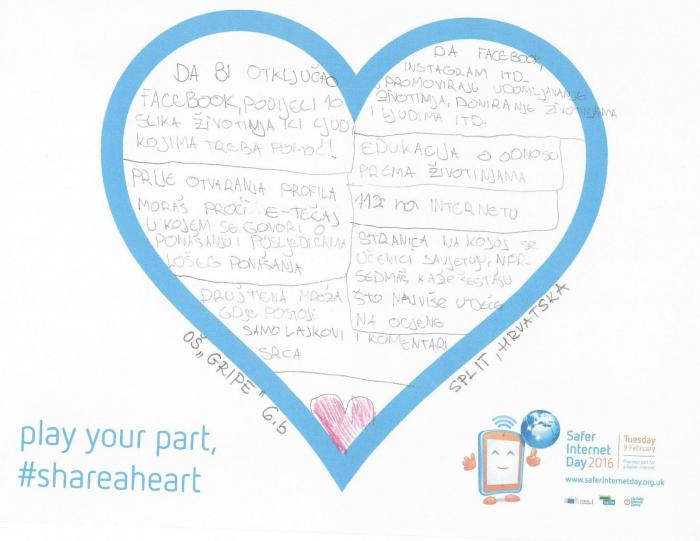 DA BI OTKLJUČAO
FACEBOOK, PODIJELI 10
SLIKA ŽIVOTINJA ILI LJUDI
KOJIMA TREBA POMOĆ!
PRIJE OTVARANJA PROFILA
MORAŠ PROĆI E-TEČAJ
U KOJEM SE GOVORI O
PONAŠANJU I POSLJEDICAMA
LOŠEG PONAŠANJA
DRUŠTVENA MREŽA
GDJE POSTOJE
SAMO LAJKOVI I KOMENTARI
SRCA
DA FACEBOOK,
INSTAGRAM ITD.
PROMOVIRAJU UDOMLJAVANJE
ŽIVOTINJA, DONIRANJE ŽIVOTINJAMA
I LJUDIMA ITD.
EDUKACIJA O ODNOSU
PREMA ŽIVOTINJAMA
112 na INTERNETU
STRANICA NA KOJOJ SE
UČENICI SAVJETUJU, NPR.
SEDMAŠ KAŽE ŠESTAŠU
ŠTO NAJVIŠE UTJEČE
NA OCJENE
OŠ „GRIPE" 6.b
SPLIT, HRVATSKA
play your part,
#shareaheart
Safer
Internet
Day 2016
Tuesday
9 February
Play your part for
a better internet
www.saferinternetday.org.uk